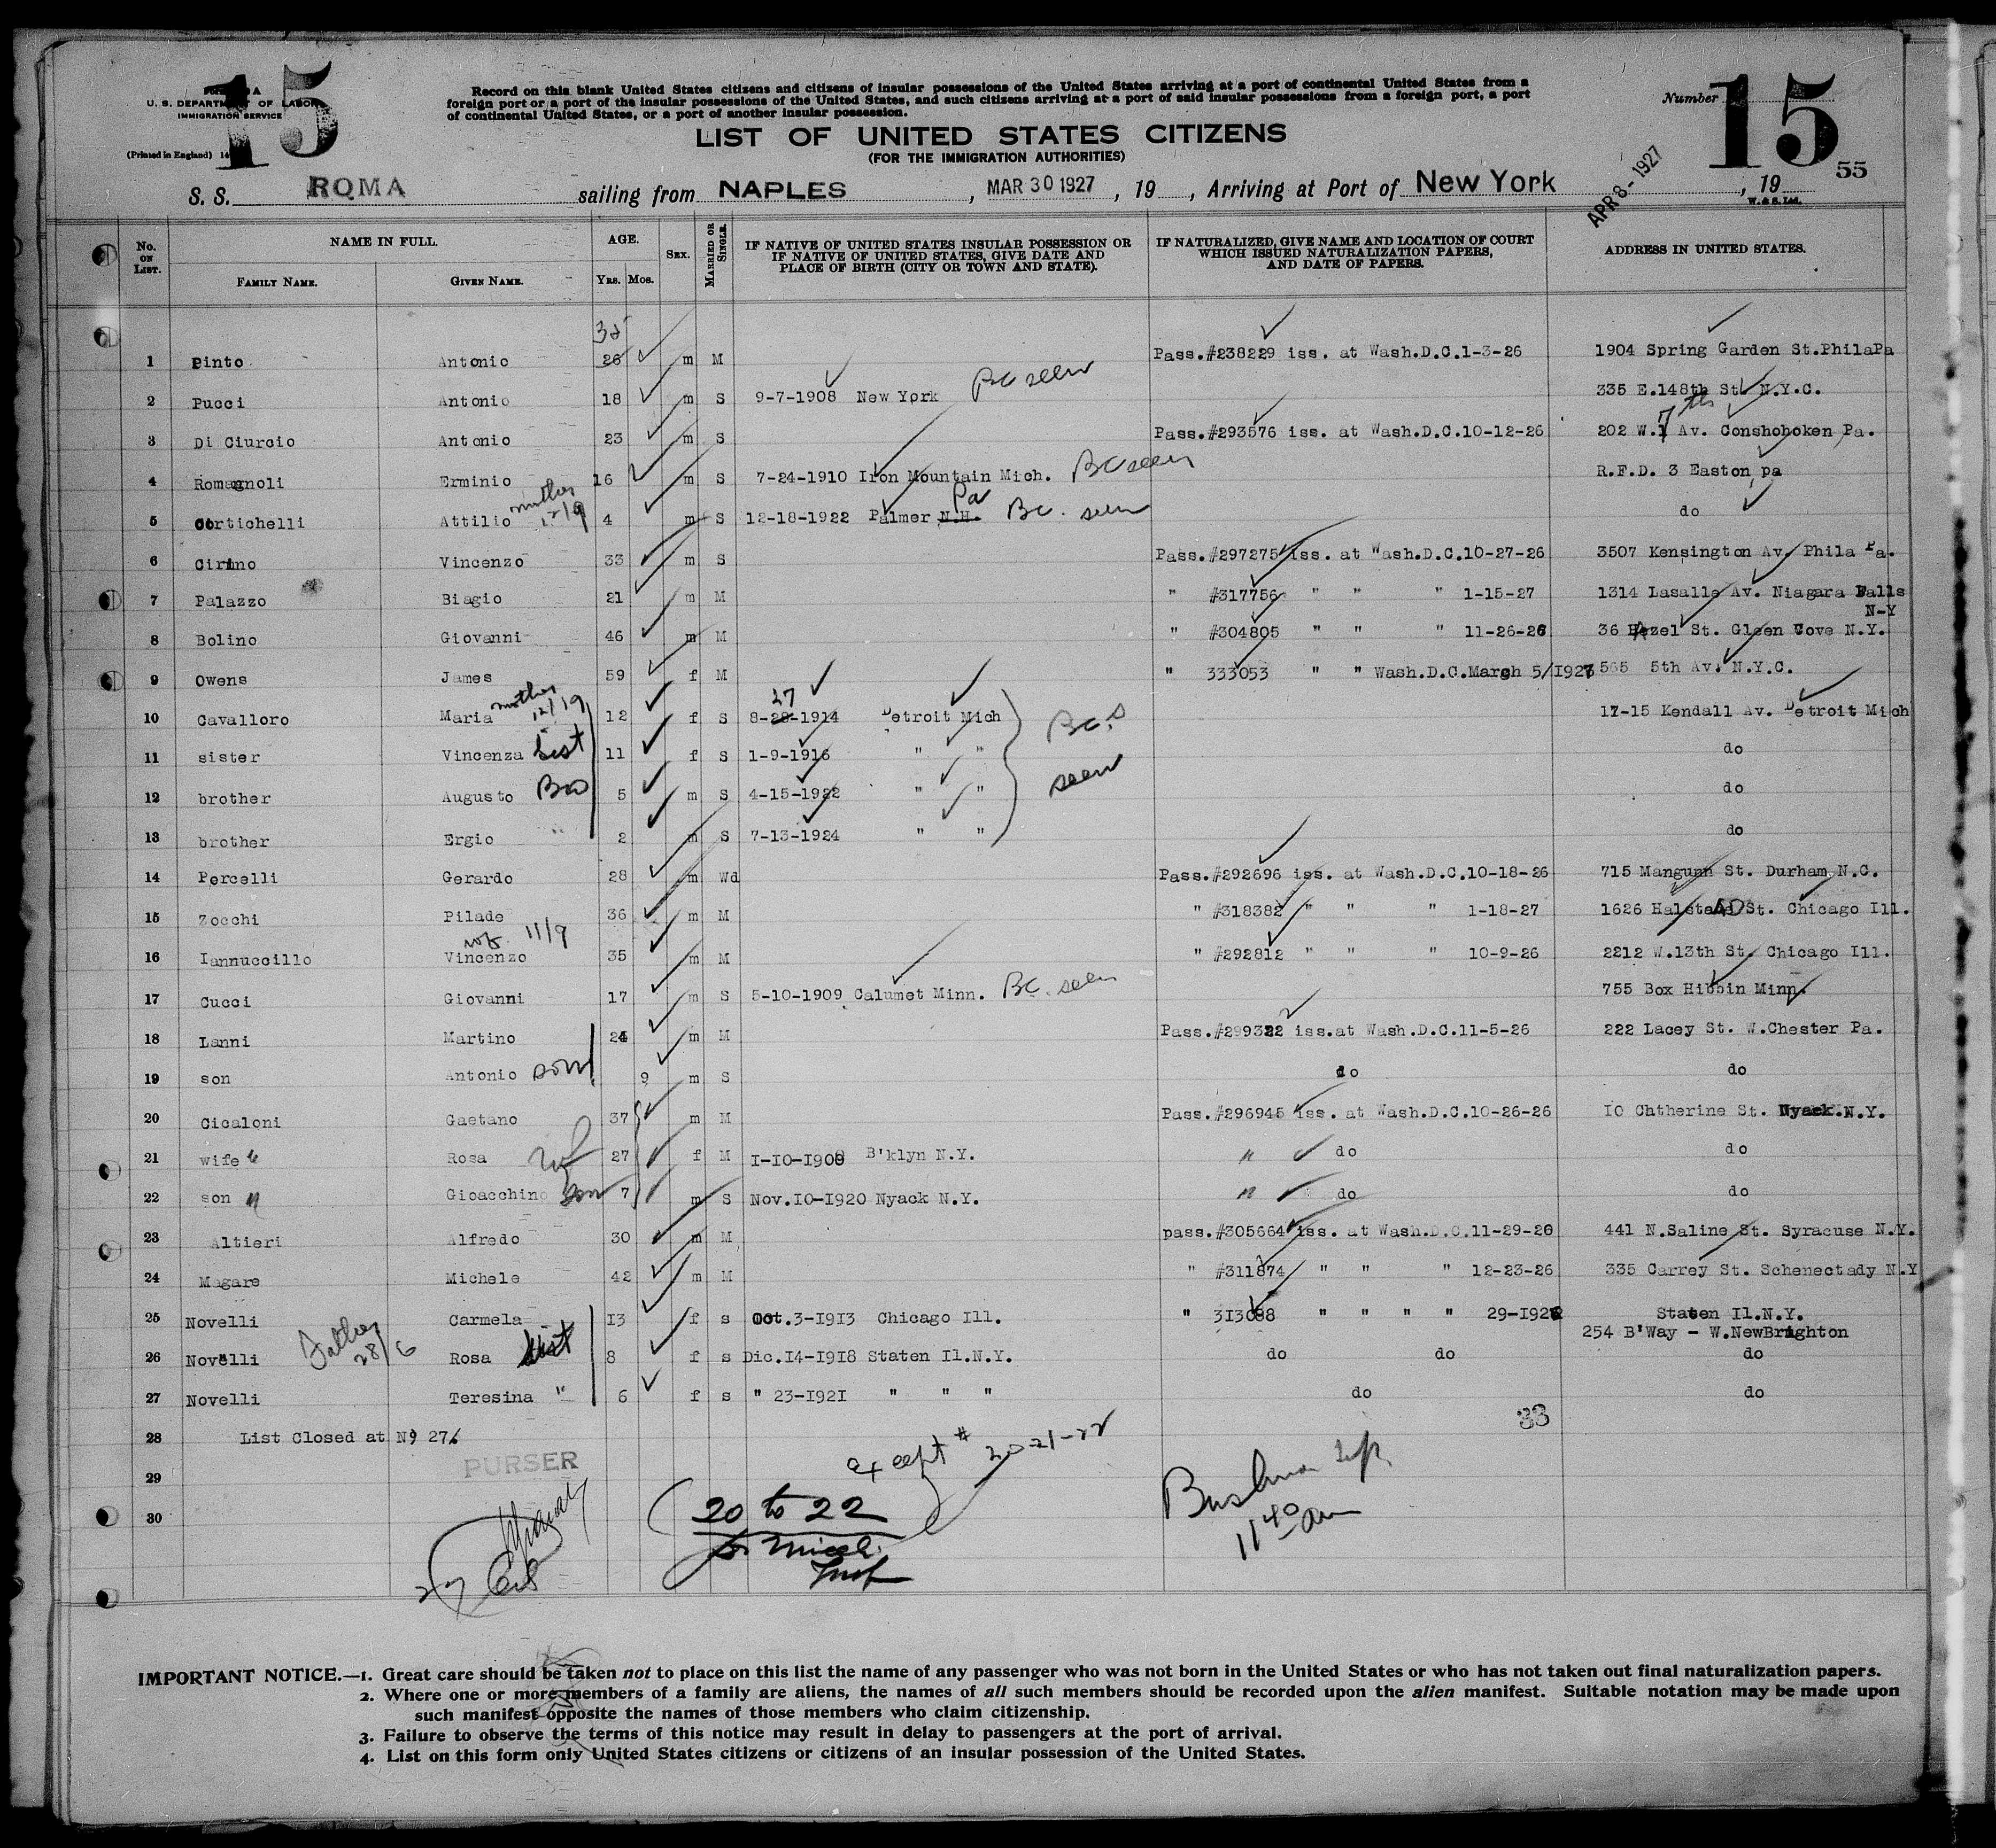 15
U. S. DEPARTMENT OF LABOR
IMMIGRATION SERVICE
(Printed in England)
Record on this blank United States citizens and citizens of insular possessions of the United States arriving at a port of continental United States from a
foreign port or a port of the insular possessions of the United States, and such citizens arriving at a port of said insular possessions from a foreign port, a port
of continental United States, or a port of another insular possession.
LIST OF UNITED STATES CITIZENS
(FOR THE IMMIGRATION AUTHORITIES)
Number 15
55
S. S. ROMA sailing from NAPLES, MAR 30 1927, 19, Arriving at Port of New York APR 8 - 1927, 19
W. & S. Ltd.
No. ON LIST. NAME IN FULL. AGE. SEX. MARRIED OR SINGLE. IF NATIVE OF UNITED STATES INSULAR POSSESSION OR IF NATIVE OF UNITED STATES, GIVE DATE AND PLACE OF BIRTH (CITY OR TOWN AND STATE). IF NATURALIZED, GIVE NAME AND LOCATION OF COURT WHICH ISSUED NATURALIZATION PAPERS, AND DATE OF PAPERS. ADDRESS IN UNITED STATES.
FAMILY NAME. GIVEN NAME. YRS. MOS.
35
1 Pinto Antonio 26 m M Pass.#238229 iss. at Wash.D.C.1-3-26 1904 Spring Garden St.PhilaPa
2 Pucci Antonio 18 m S 9-7-1908 New York BC seen 335 E.148th St. N.Y.C.
7th
3 Di Ciurcio Antonio 23 m S Pass.#293576 iss. at Wash.D.C.10-12-26 202 W.1 Av. Conshohoken Pa.
4 Romagnoli Erminio 16 m S 7-24-1910 Iron Mountain Mich. BC seen R.F.D. 3 Easton pa
mother 12/9 Pa
5 Cortichelli Attilio 4 m S 12-18-1922 Palmer N.H. BC. seen do
6 Cirino Vincenzo 33 m S Pass.#297275 iss. at Wash.D.C.10-27-26 3507 Kensington Av. Phila Pa.
7 Palazzo Biagio 21 m M " #317756 " " " 1-15-27 1314 Lasalle Av. Niagara Falls
N-Y
8 Bolino Giovanni 46 m M " #304805 " " " 11-26-26 36 Hazel St. Gleen Cove N.Y.
9 Owens James 59 f M " 333053 " " Wash.D.C.March 5/1927 565 5th Av. N.Y.C.
mother 12/19 27
10 Cavalloro Maria 12 f S 8-28-1914 Detroit Mich BC.s 17-15 Kendall Av. Detroit Mich
11 sister Vincenza Sist 11 f S 1-9-1916 " " do
12 brother Augusto Bro 5 m S 4-15-1922 " " seen do
13 brother Ergio " 2 m S 7-13-1924 " " do
14 Percelli Gerardo 28 m Wd Pass.#292696 iss. at Wash.D.C.10-18-26 715 Mangumn St. Durham N.C.
15 Zocchi Pilade 36 m M " #318382 " " " 1-18-27 1626 Halsted St. Chicago Ill.
11/9
16 Iannuccillo Vincenzo 35 m M " #292812 " " " 10-9-26 2212 W.13th St. Chicago Ill.
17 Cucci Giovanni 17 m S 5-10-1909 Calumet Minn. BC. seen 755 Box Hibbin Minn.
18 Lanni Martino 24 m M Pass.#299322 iss.at Wash.D.C.11-5-26 222 Lacey St. W.Chester Pa.
19 son Antonio son 9 m S do do
20 Cicaloni Gaetano 37 m M Pass.#296945 iss. at Wash.D.C.10-26-26 10 Chtherine St. Nyack.N.Y.
21 wife Rosa wf 27 f M 1-10-1900 B'klyn N.Y. " do do
22 son " Gioacchino son 7 m S Nov.10-1920 Nyack N.Y. " do do
23 Altieri Alfredo 30 m M pass.#305664 iss. at Wash.D.C.11-29-26 441 N.Saline St. Syracuse N.Y.
24 Magare Michele 42 m M " #311874 " " " 12-23-26 335 Carrey St. Schenectady N.Y
25 Novelli Carmela 13 f s Oct.3-1913 Chicago Ill. " 313088 " " " " 29-192 Staten Il.N.Y.
254 B'Way - W.NewBrighton
Father 28/6
26 Novelli Rosa Sist 8 f s Dic.14-1918 Staten Il.N.Y. do do do
27 Novelli Teresina " 6 f s " 23-1921 " " " do do
33
28 List Closed at Nº 27
29
30
PURSER
except # 20-21-22
20 to 22
11 40 am
IMPORTANT NOTICE.—1. Great care should be taken not to place on this list the name of any passenger who was not born in the United States or who has not taken out final naturalization papers.
2. Where one or more members of a family are aliens, the names of all such members should be recorded upon the alien manifest. Suitable notation may be made upon
such manifest opposite the names of those members who claim citizenship.
3. Failure to observe the terms of this notice may result in delay to passengers at the port of arrival.
4. List on this form only United States citizens or citizens of an insular possession of the United States.